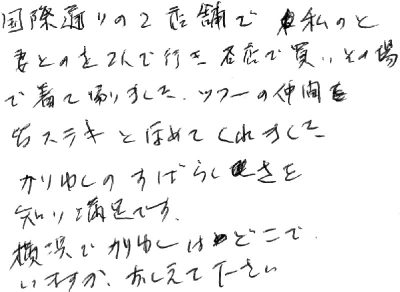 国際通りの2店舗で私のと
妻とのを2人で行き各店で買いその場
で着て帰りました。ツアーの仲間も
皆ステキとほめてくれました
かりゆしのすばらしさを
知り満足です。
横浜でかりゆしはどこで
いますか、おしえて下さい